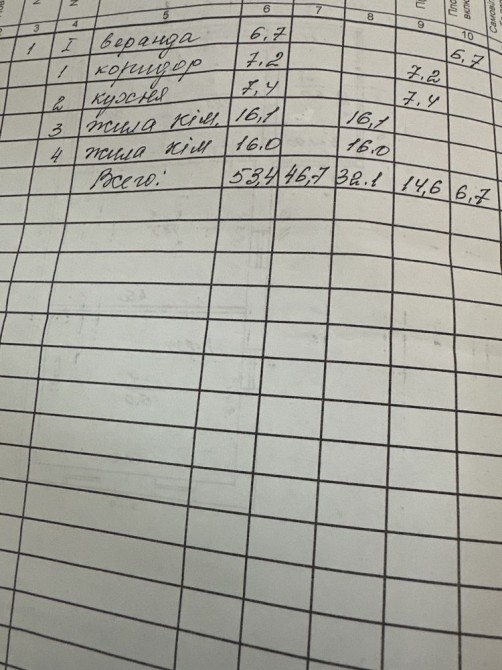 3 4 5 6 7 8 9 10
1 I веранда 6,7 6,7
1 коридор 7,2 7,2
2 кухня 7,4 7,4
3 жила кім. 16,1 16,1
4 жила кім 16.0 16.0
Всего: 53,4 46,7 32.1 14,6 6,7